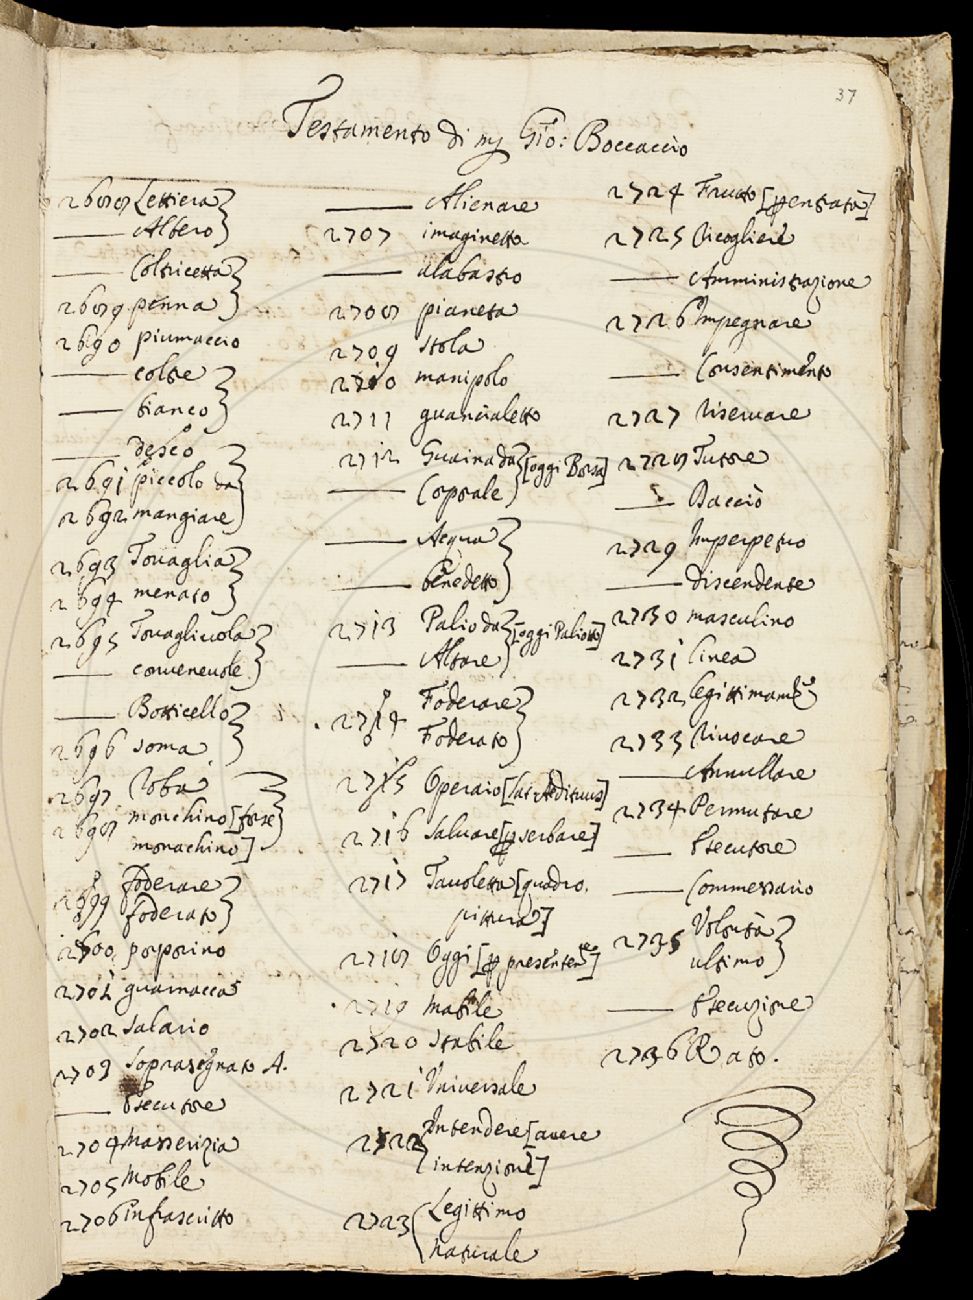 37
Testamento di mj Gio: Boccaccio
2688 Lettiera
—— Albero
—— Coltricetta
2689 penna
2690 piumaccio
—— coltre
—— bianco
—— desco
2691 piccolo da
2692 mangiare
2693 Tovaglia
2694 menato
2695 Tovagliuola
—— convenevole
—— Botticello
2696 soma
2697 Roba
2698 monchino [forse
monachino]
2699 foderare
foderato
2700 porporino
2701 guarnacca
2702 Salario
2703 Soprasegnato A.
—— Esecutore
2704 Masserizia
2705 Mobile
2706 infrascritto
—— Alienare
2707 imaginetta
—— alabastro
2708 pianeta
2709 stola
2710 manipolo
2711 guancialetto
2712 Guaina da [oggi Borsa]
—— Corporale
—— Acqua
—— benedetto
2713 Palio da [oggi Paliotto]
—— Altare
2714 Foderare
Foderato
2715 Operaio
2716 Salvare [p serbare]
2717 Tavoletta [quadro,
pittura]
2718 Oggi [p presentem.te]
2719 Mobile
2720 Stabile
2721 Universale
2722 Intendere [avere
intenzione]
2723 Legittimo
Naturale
2724 Frutto [p entrata]
2725 Ricogliere
—— Amministrazione
2726 Impegnare
—— Consentimento
2727 Riservare
2728 Tutore
—— Boccio
2729 Imperpetuo
—— discendente
2730 masculino
2731 linea
2732 legittimam.te
2733 Rivocare
—— Annullare
2734 Permutare
—— Esecutore
—— Commessario
2735 Volontà
ultimo
—— Esecuzione
2736 Rato.